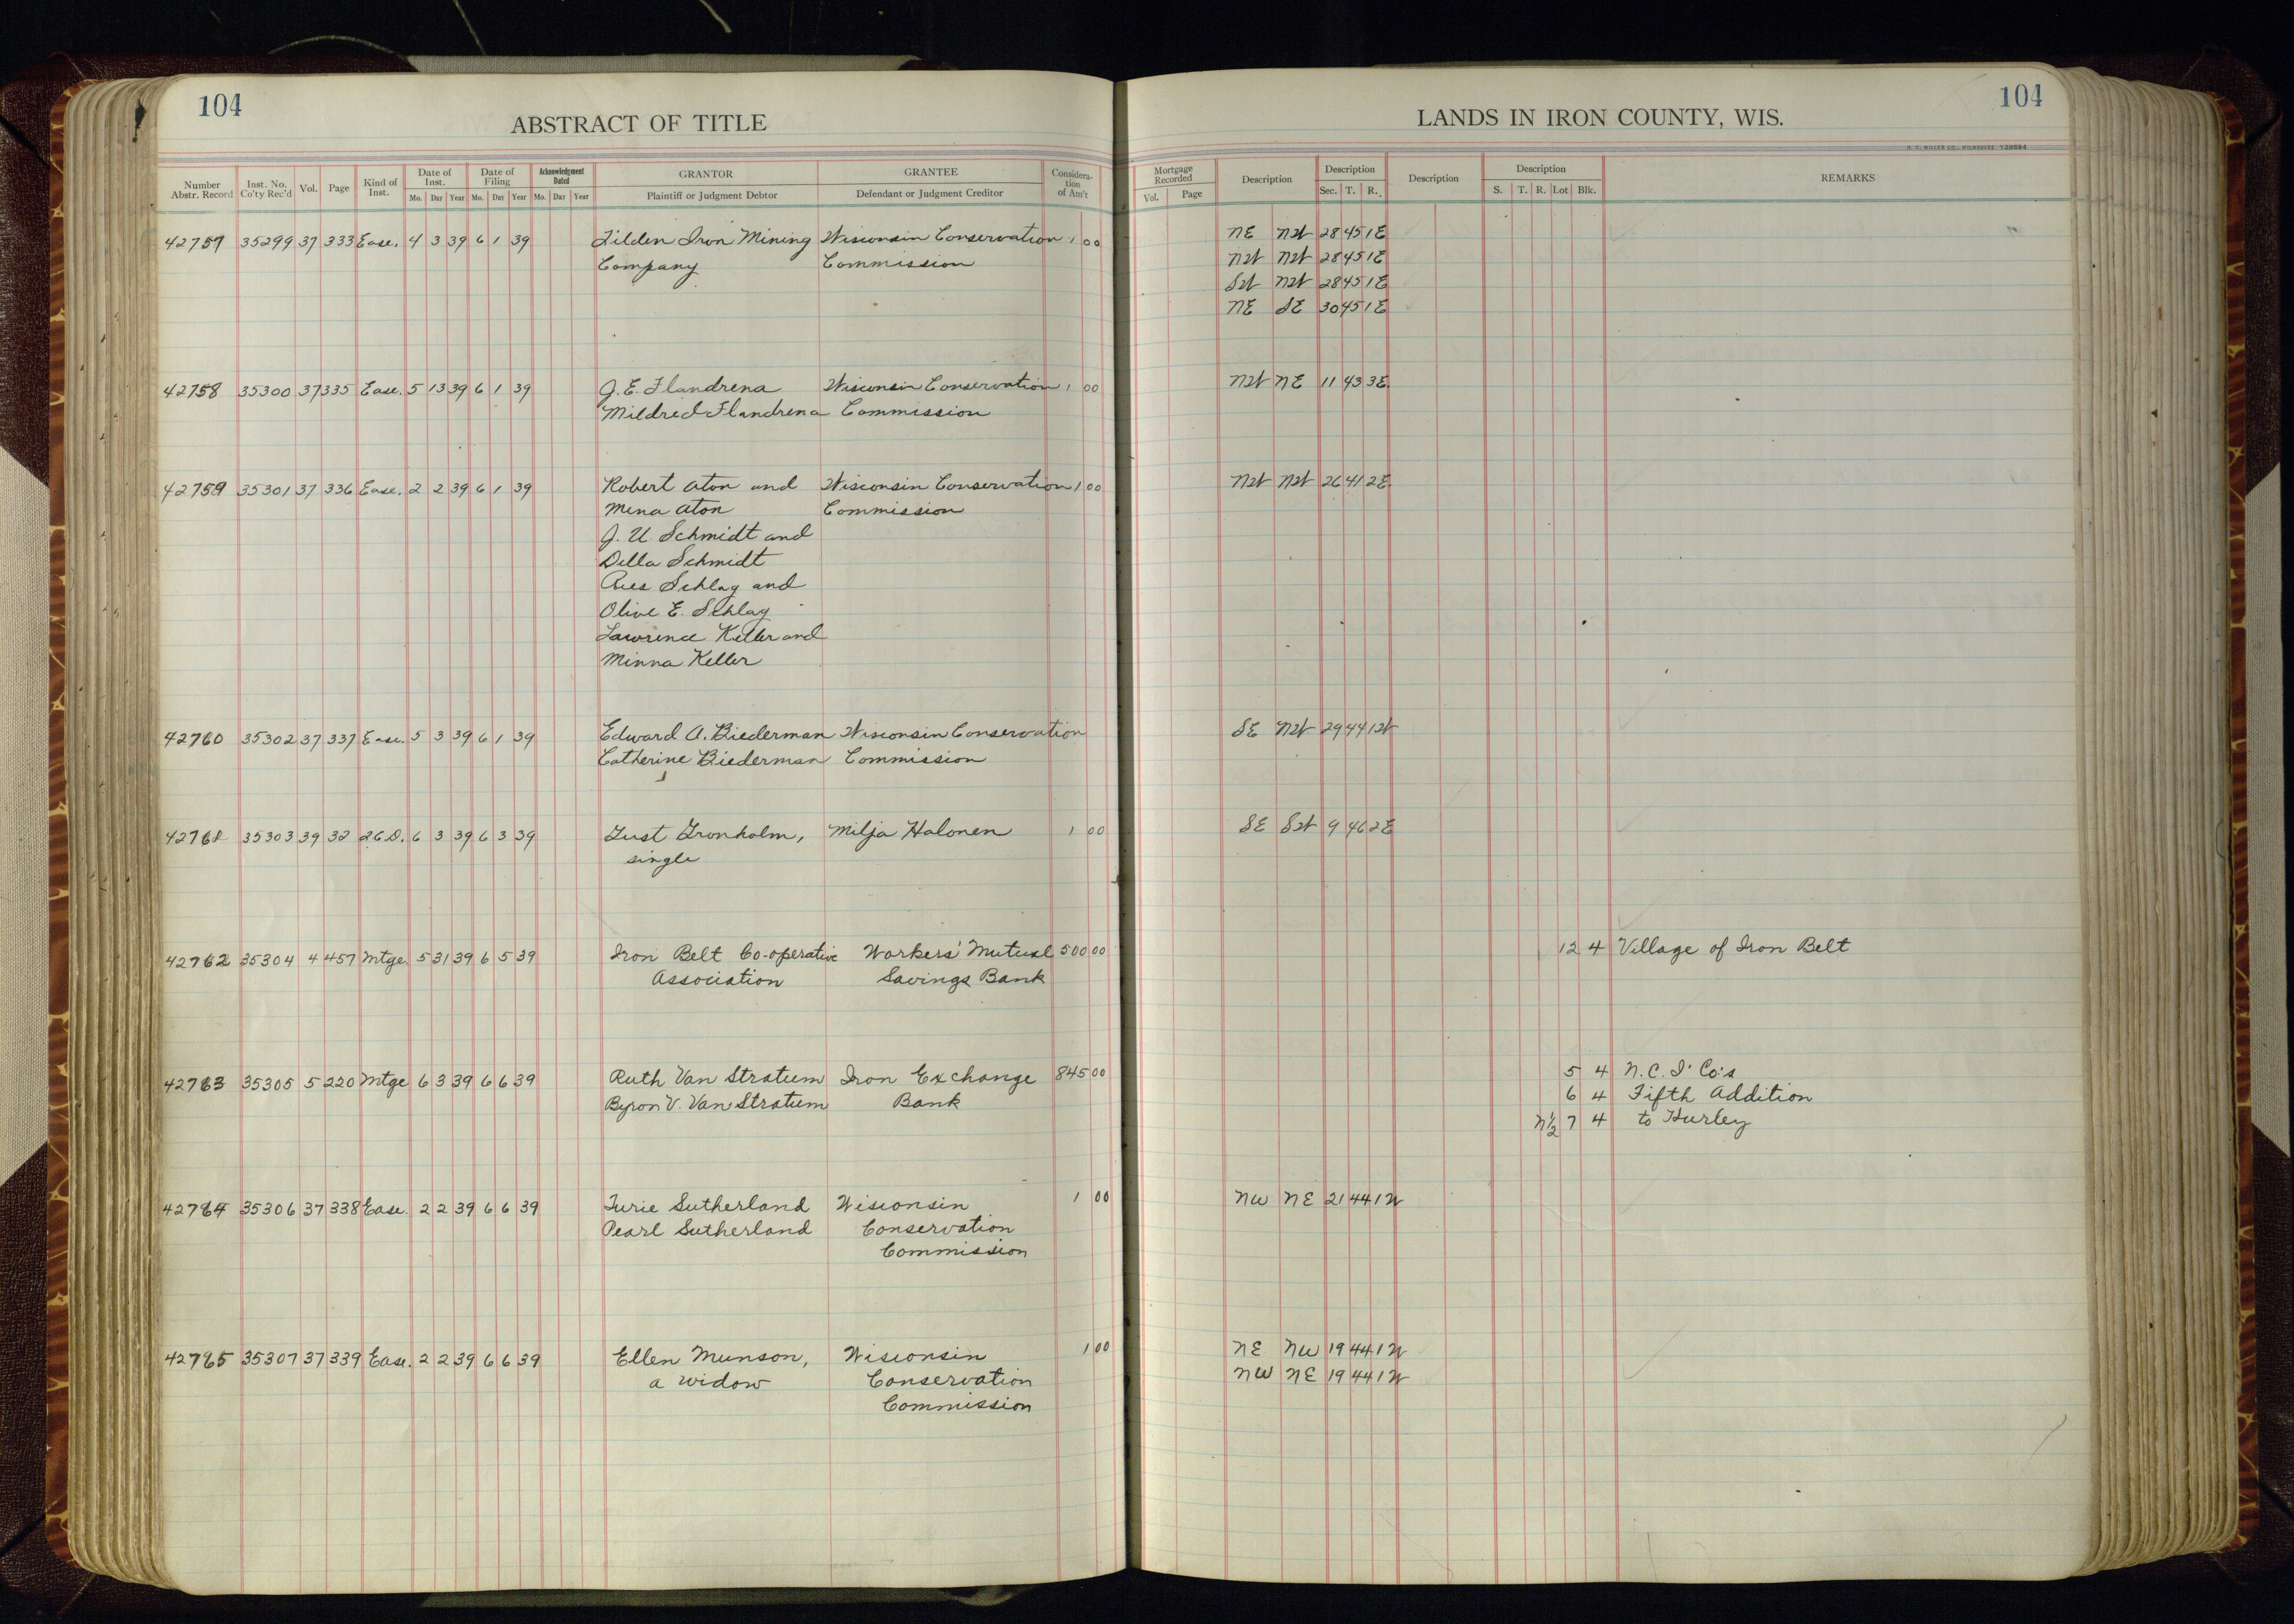 104
ABSTRACT OF TITLE
Number Abstr. Record | Inst. No. Co'ty Rec'd | Vol. | Page | Kind of Inst. | Date of Inst. Mo. Day Year | Date of Filing Mo. Day Year | Acknowledgment Dated Mo. Day Year | GRANTOR Plaintiff or Judgment Debtor | GRANTEE Defendant or Judgment Creditor | Consideration of Am't
42757 35299 37 333 Ease. 4 3 39 6 1 39 Tilden Iron Mining Wisconsin Conservation 1 00
Company Commission
42758 35300 37 335 Ease. 5 13 39 6 1 39 J. E. Flandrena Wisconsin Conservation 1 00
Mildred Flandrena Commission
42759 35301 37 336 Ease. 2 2 39 6 1 39 Robert Aton and Wisconsin Conservation 1 00
Mena Aton Commission
J. U. Schmidt and
Della Schmidt
Schlag and
Olive E. Schlag
Lawrence Keller and
Minna Keller
42760 35302 37 337 Ease. 5 3 39 6 1 39 Edward A. Biederman Wisconsin Conservation
Catherine Biederman Commission
42761 35303 39 32 2.C.D. 6 3 39 6 3 39 Gust Gronholm, Milja Halonen 1 00
single
42762 35304 4 457 Mtge 5 31 39 6 5 39 Iron Belt Co-operative Workers' Mutual 500 00
Association Savings Bank
42763 35305 5 220 Mtge 6 3 39 6 6 39 Ruth Van Stratum Iron Exchange 845 00
Byron V. Van Stratum Bank
42764 35306 37 338 Ease. 2 2 39 6 6 39 Turie Sutherland Wisconsin 1 00
Pearl Sutherland Conservation
Commission
42765 35307 37 339 Ease. 2 2 39 6 6 39 Ellen Munson, Wisconsin 1 00
a widow Conservation
Commission
104
LANDS IN IRON COUNTY, WIS.
H. C. MILLER CO., MILWAUKEE Y28594
Mortgage Recorded Vol. Page | Description | Description Sec. T. R. | Description | Description S. T. R. Lot Blk. | REMARKS
NE NW 28 45 1E
NW NW 28 45 1E
SW NW 28 45 1E
NE SE 30 45 1E
NW NE 11 43 3E
NW NW 26 41 2E
SE NW 29 44 1W
SE SW 9 46 2E
12 4 Village of Iron Belt
5 4 N.C.I' Co's
6 4 Fifth Addition
N½ 7 4 to Hurley
NW NE 21 44 1W
NE NW 19 44 1W
NW NE 19 44 1W